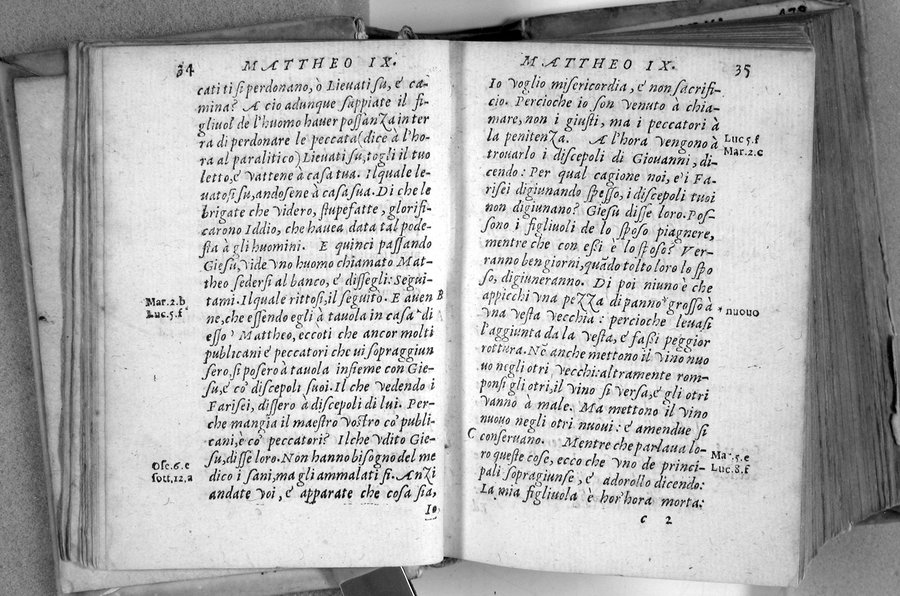 34
MATTHEO IX.
cati ti si perdonano, ò Lieuati su, e ca-
mina? A cio adunque sappiate il fi-
gliuol de l'huomo hauer possanza in ter
ra di perdonare le peccata (dice à l'ho-
ra al paralitico) Lieuati su, togli il tuo
letto, e vattene à casa tua. Il quale le-
uatosi su, andosene à casa sua. Di che le
brigate che videro, stupefatte, glorifi-
carono Iddio, che hauea data tal pode-
stà à gli huomini. E quinci passando
Giesu, vide vno huomo chiamato Mat-
theo sedersi al banco, e dissegli: Segui-
tami. Il quale rittosi, il seguito. E auen B
Mar.2.b
Luc.5.f
ne, che essendo egli à tauola in casa di
esso Mattheo, eccoti che ancor molti
publicani e peccatori che ui sopraggiun
sero, si posero à tauola insieme con Gie-
su, e co' discepoli suoi. Il che vedendo i
Farisei, dissero à discepoli di lui. Per-
che mangia il maestro vostro co' publi-
cani, e co' peccatori? Il che vdito Gie-
su, disse loro. Non hanno bisogno del me
dico i sani, ma gli ammalati si. Anzi
andate voi, e apparate che cosa sia,
Ose.6.e
sott.12.a
Io
MATTHEO IX.
35
Io voglio misericordia, e non sacrifi-
cio. Percioche io son venuto à chia-
mare, non i giusti, ma i peccatori à
la penitenza. A l'hora vengono à
trouarlo i discepoli di Giouanni, di-
Luc.5.f
Mar.2.c
cendo: Per qual cagione noi, e i Fa-
risei digiunando spesso, i discepoli tuoi
non digiunano? Giesu disse loro. Pos-
sono i figliuoli de lo sposo piagnere,
mentre che con essi è lo sposo? Ver-
ranno ben giorni, quãdo tolto loro lo spo
so, digiuneranno. Di poi niuno è che
appicchi vna pezza di panno * grosso à
* nuouo
vna vesta vecchia: percioche leuasi
l'aggiunta da la vesta, e fassi peggior
rottura. Nè anche mettono il vino nuo
uo negli otri vecchi: altramente rom-
ponsi gli otri, il vino si versa, e gli otri
vanno à male. Ma mettono il vino
nuouo negli otri nuoui: e amendue si
C conseruano. Mentre che parlaua lo-
ro queste cose, ecco che vno de princi-
pali sopragiunse, e adorollo dicendo:
La mia figliuola è hor'hora morta:
Mar.5.e
Luc.8.f
C 2